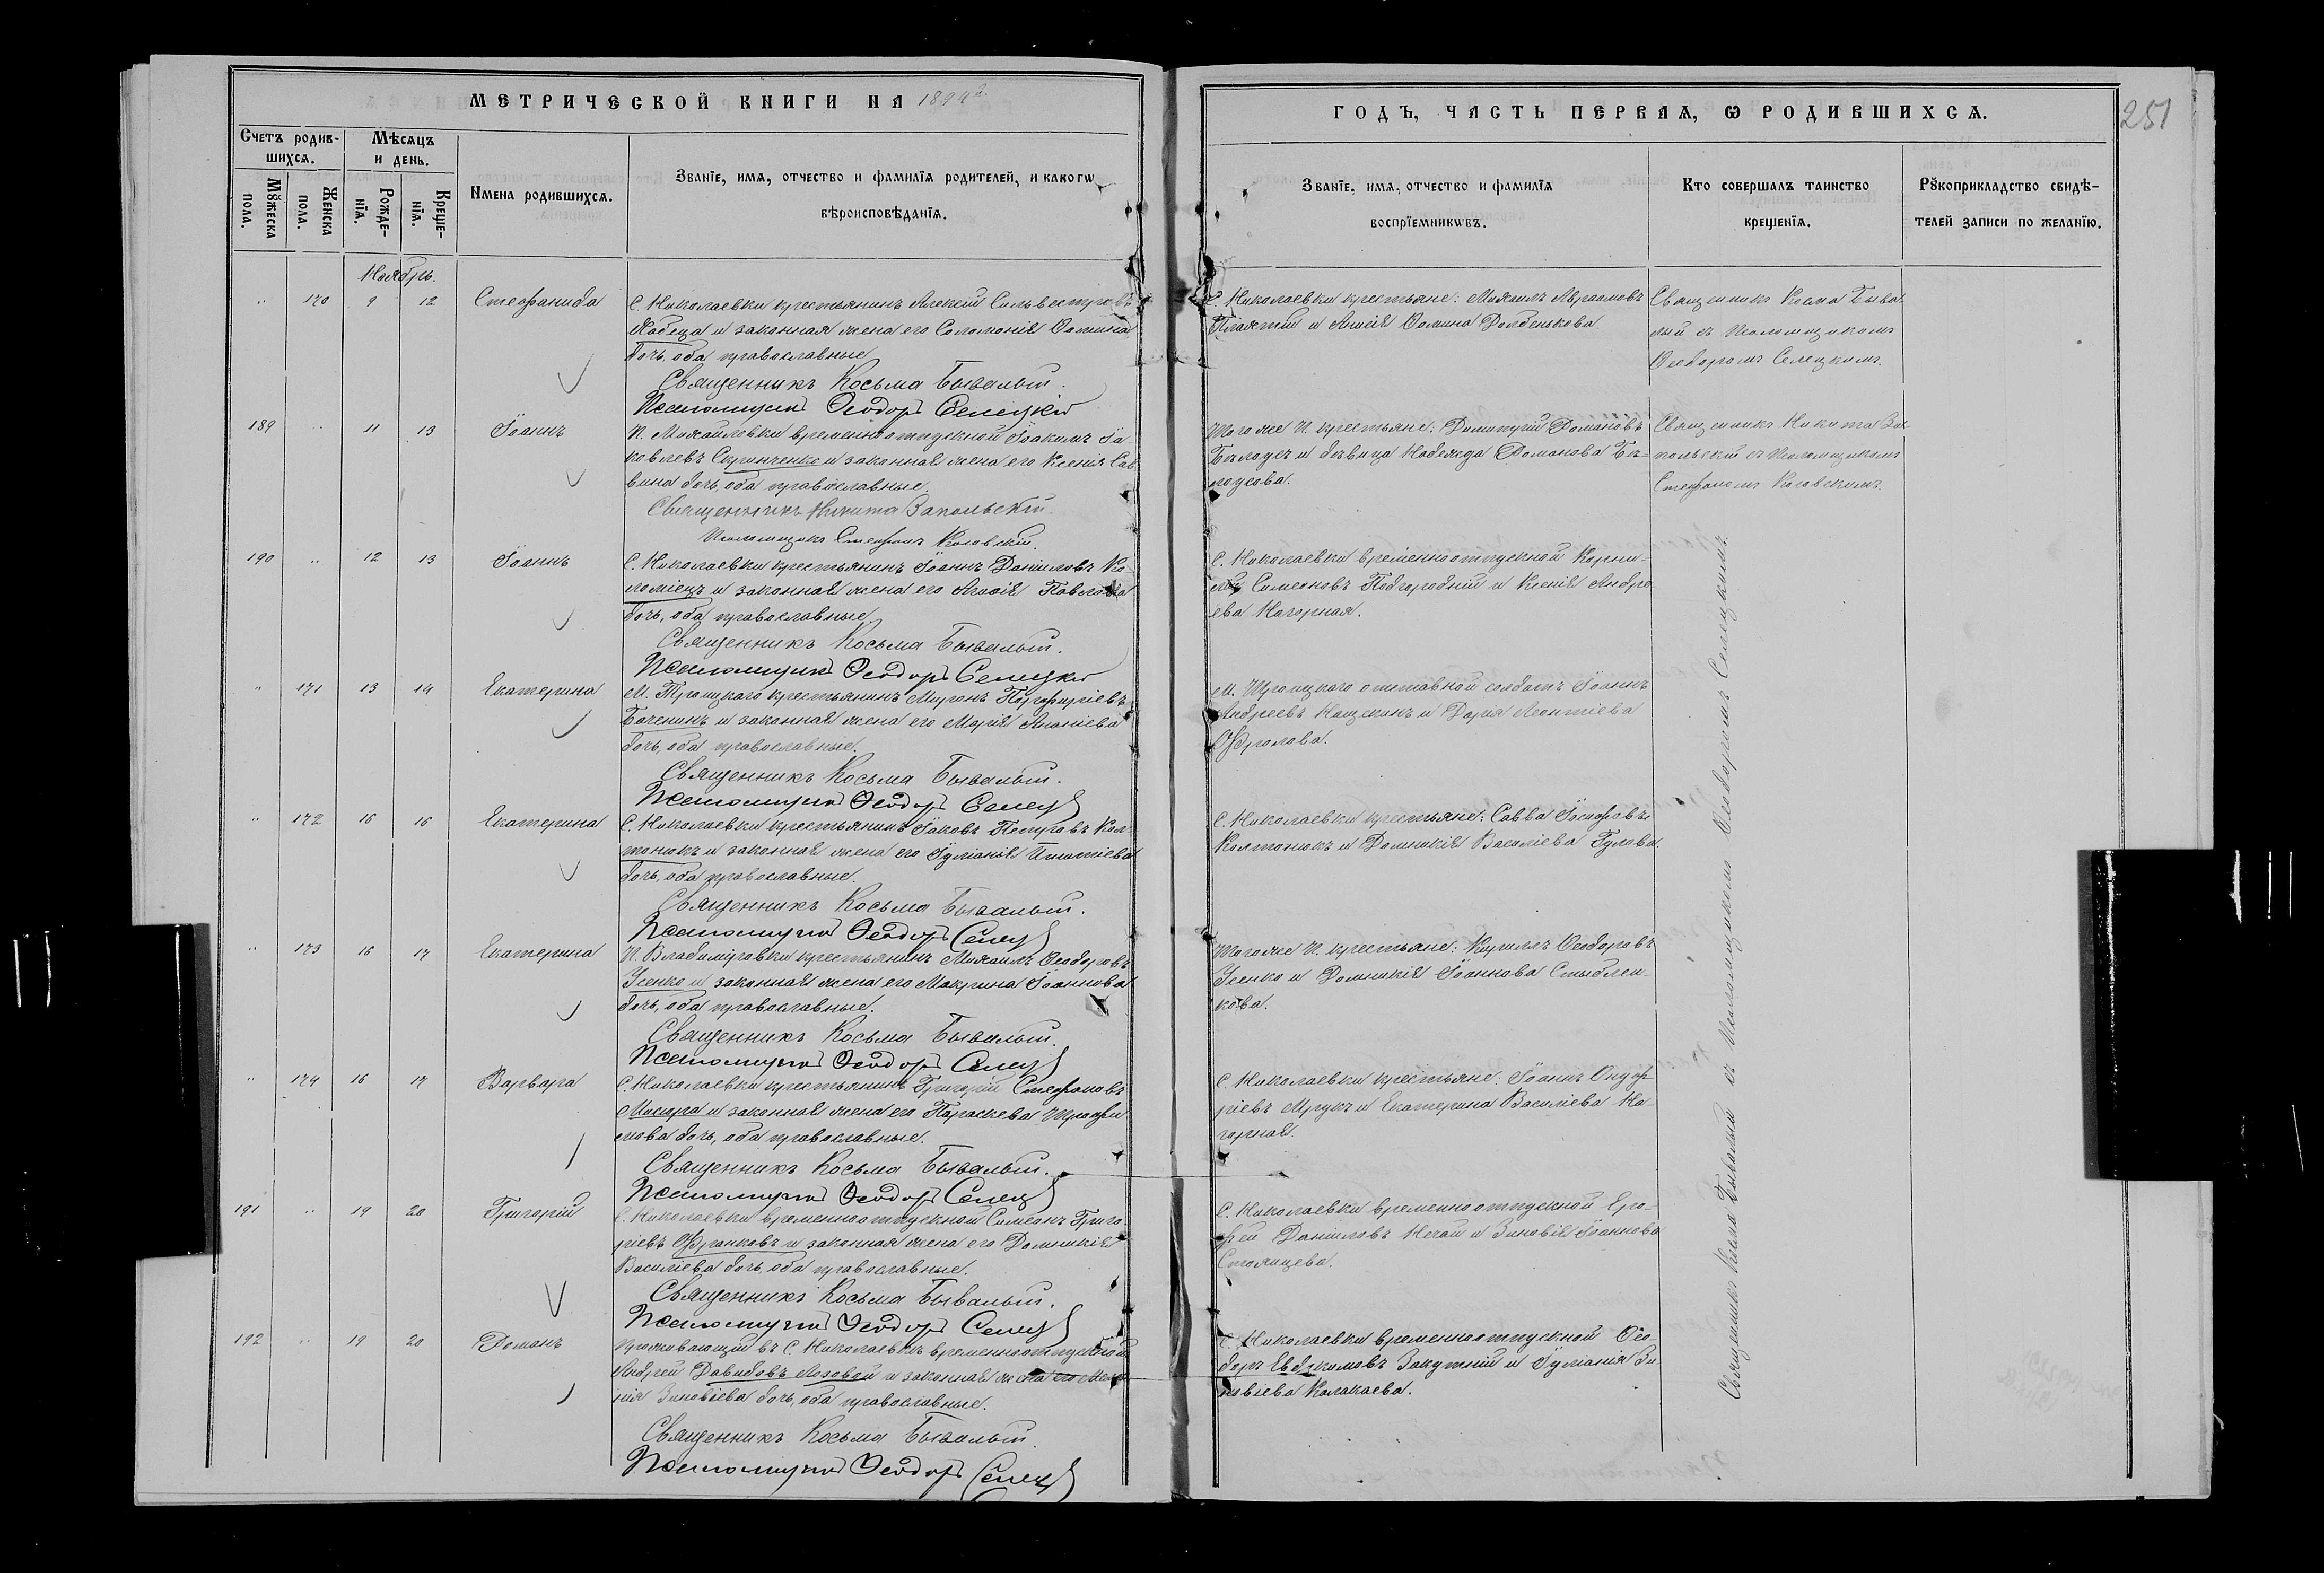 МЕТРИЧЕСКОЙ КНИГИ НА 1894 г.
ГОДЪ, ЧАСТЬ ПЕРВАЯ, Ѡ РОДИВШИХСѦ.
251
Счетъ родив-
шихсѧ.
Мѣсѧцъ
и день.
Мꙋжеска
пола.
Женска
пола.
Рожде-
нїѧ.
Креще-
нїѧ.
Имена родившихсѧ.
Званїе, имѧ, отчество и фамилїѧ родителей, и какогѡ
вѣроисповѣданїѧ.
Званїе, имѧ, отчество и фамилїѧ
воспрїемникѡвъ.
Кто совершалъ таинство
крещенїѧ.
Рꙋкоприкладство свидѣ-
телей записи по желанїю.
Ноябрь.
" 170 9 12 Стефанида
С. Николаевки крестьянинъ Алексій Сильвестровъ
и законная жена его Соломонія Ѳомина
дочь, оба православные
Священникъ Косьма Бывалый.
Псаломщикъ Ѳеодоръ Селецкій
С. Николаевки крестьяне: Михаилъ Авраамовъ
и Анисія Ѳомина Долбенькова
Священникъ Косма Быва-
лый съ Псаломщикомъ
Ѳеодоромъ Селецкимъ.
189 " 11 13 Іоаннъ
П. Михайловки временноотпускной Іоакимъ Іа-
ковлевъ Скринченко и законная жена его Ксенія Сав-
вина дочь, оба православные.
Священникъ Никита Запольскій.
Псаломщикъ Стефанъ Косовскій.
Того же П. крестьяне: Димитрій Романовъ
Бѣлоусъ и дѣвица Надежда Романова Бѣ-
лоусова.
Священникъ Никита За-
польскій съ Псаломщикомъ
Стефаномъ Косовскимъ.
190 " 12 13 Іоаннъ
С. Николаевки крестьянинъ Іоаннъ Даніиловъ Ко-
ломіецъ и законная жена его Агафія Павлова
дочь, оба православные.
Священникъ Косьма Бывалый.
Псаломщикъ Ѳеодоръ Селецкій
С. Николаевки временноотпускной Корни-
лій Симеоновъ Подгородній и Ксенія Андре-
ева Нагорная.
" 171 13 14 Екатерина
М. Троицкаго крестьянинъ Миронъ Порфиріевъ
Баченинъ и законная жена его Марія Ананіева
дочь, оба православные.
Священникъ Косьма Бывалый.
Псаломщикъ Ѳеодоръ Селец
М. Троицкаго отставной солдатъ Іоаннъ
Андреевъ Нащекинъ и Дарія Леонтіева
Фролова.
" 172 16 16 Екатерина
С. Николаевки крестьянинъ Іаковъ Петровъ Кол-
тонюкъ и законная жена его Іуліанія Игнатіева
дочь, оба православные.
Священникъ Косьма Бывалый.
Псаломщикъ Ѳеодоръ Селец
С. Николаевки крестьяне: Савва Іосифовъ
Колтонюкъ и Домникія Василіева Гулова.
" 173 16 17 Екатерина
П. Владиміровки крестьянинъ Михаилъ Ѳеодоровъ
Усенко и законная жена его Макрина Іоаннова
дочь, оба православные.
Священникъ Косьма Бывалый.
Псаломщикъ Ѳеодоръ Селец
Того же П. крестьяне: Кириллъ Ѳеодоровъ
Усенко и Домникія Іоаннова
" 174 16 17 Варвара
С. Николаевки крестьянинъ Григорій Стефановъ
Мисюра и законная жена его Параскева Трофи-
мова дочь, оба православные.
Священникъ Косьма Бывалый.
Псаломщикъ Ѳеодоръ Селец
С. Николаевки крестьяне: Іоаннъ Онуф-
ріевъ Мрукъ и Екатерина Василіева На-
горная.
191 " 19 20 Григорій
С. Николаевки временноотпускной Симеонъ Григо-
ріевъ Франковъ и законная жена его Домникія
Василіева дочь, оба православные.
Священникъ Косьма Бывалый.
Псаломщикъ Ѳеодоръ Селец
С. Николаевки временноотпускной Еро-
фей Даніиловъ Нечай и Зиновія Іоаннова
192 " 19 20 Романъ
Проживающій въ С. Николаевкѣ временноотпускной
Андрей Давидовъ Лозовой и законная жена его Мела-
нія Зиновіева дочь, оба православные.
Священникъ Косьма Бывалый.
Псаломщикъ Ѳеодоръ Селец
С. Николаевки временноотпускной Ѳео-
доръ Евдокимовъ Закутній и Іуліанія Зи-
новіева Колакаева.
Священникъ Косма Бывалый съ Псаломщикомъ Ѳеодоромъ Селецкимъ.